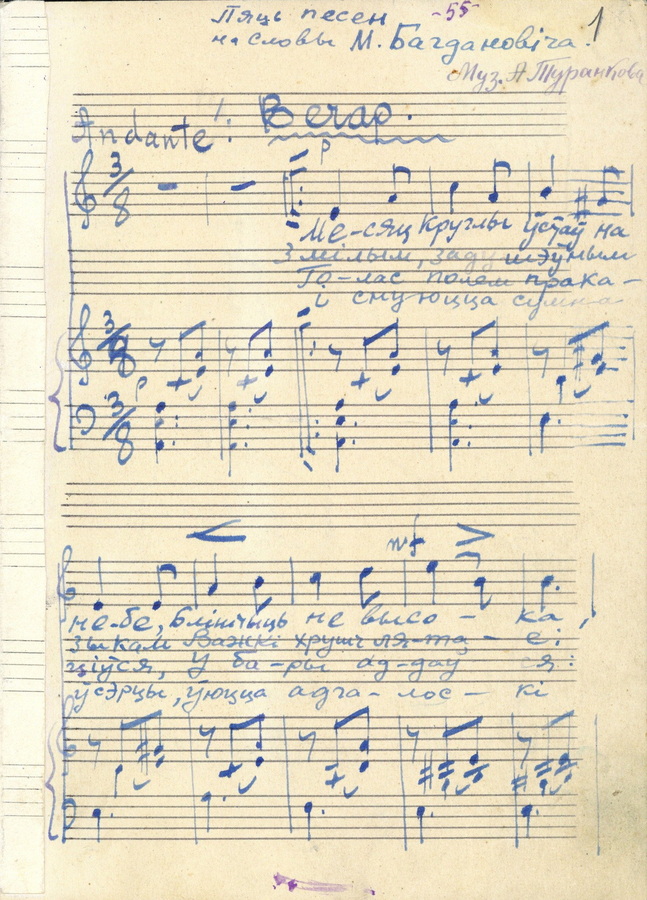 Пяць песен -55-
на словы М. Багдановіча. 1
Муз. А Туранкова
Andante: Вечар.
p
3/8
Ме-сяц круглы ўстаў на
З мілым, задушэўным
Го-лас полем прака-
і снуюцца сумна
3/8
p
3/8
mf
не-бе, блішчыць не высо-ка,
зыкам Важкі хрушч ля-та-е:
ціўся, У ба-ры ад-даў ся:
ўсэрцы, ўюцца адга-лос-кі